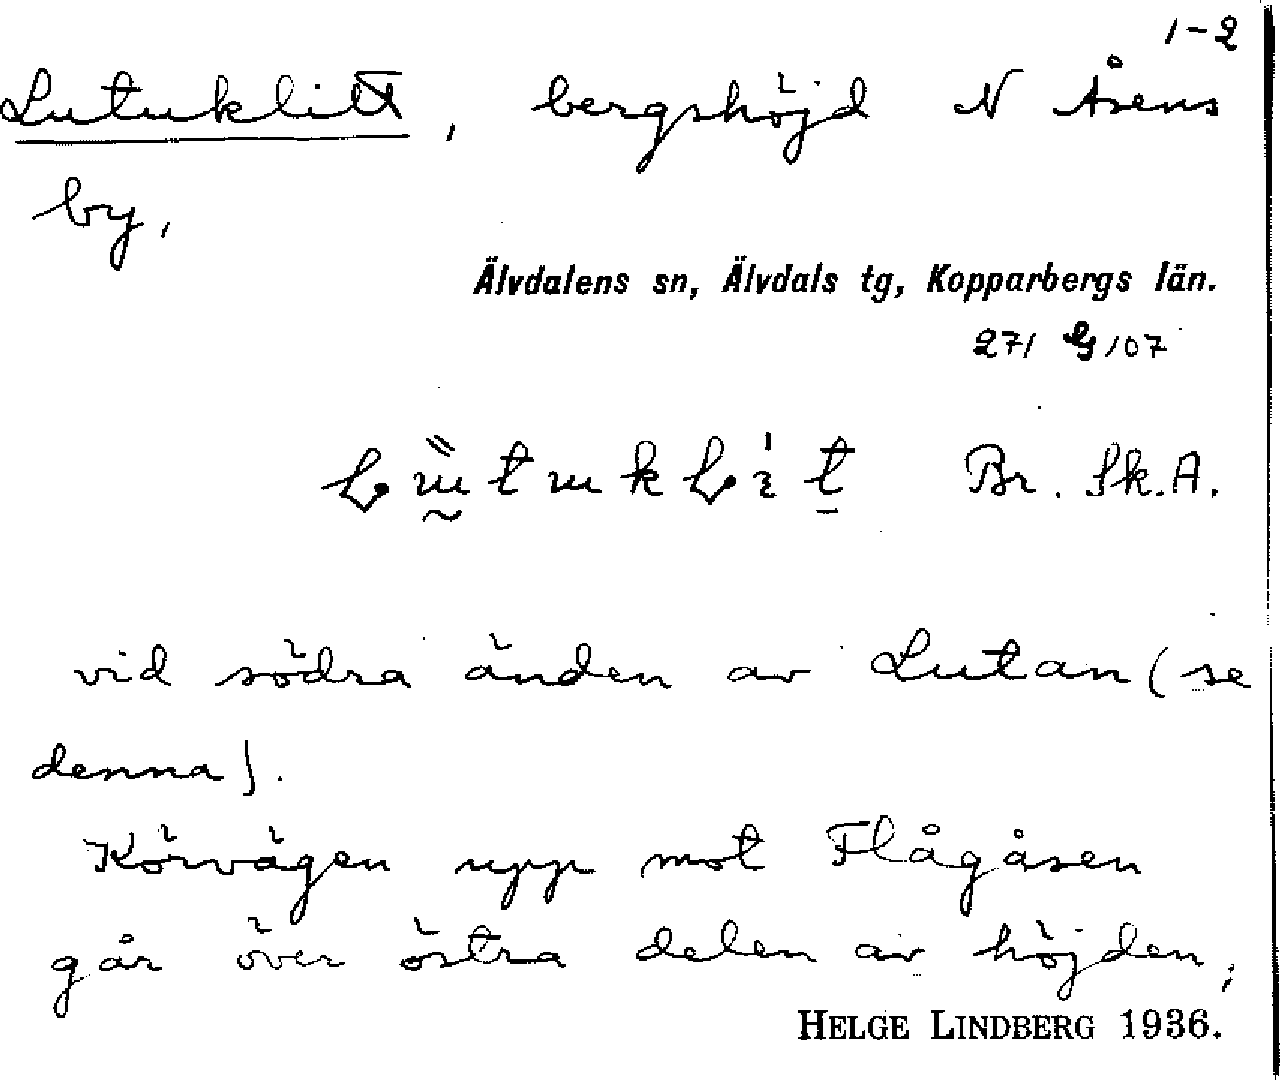 1-2
Lutuklitt, bergshöjd N Åsens
by,
Älvdalens sn, Älvdals tg, Kopparbergs län.
271 107
Br. Sk.A.
vid södra änden av Lutan (se
denna).
Körvägen upp mot Flågåsen
går över östra delen av höjden,
HELGE LINDBERG 1936.